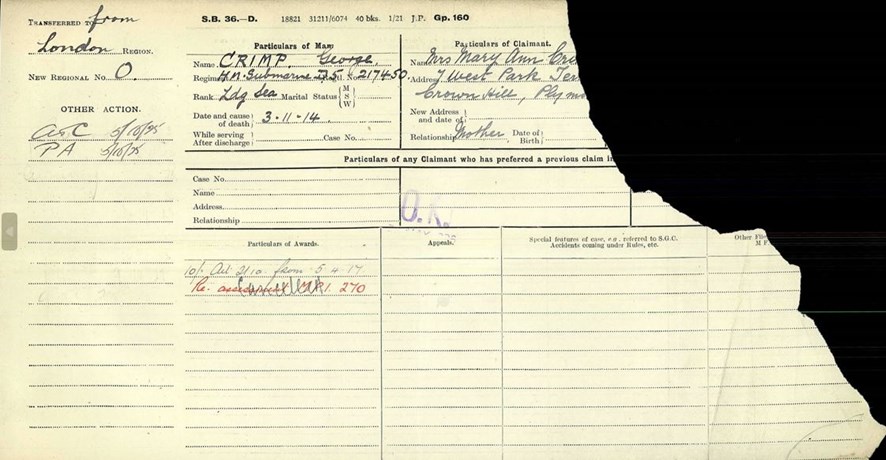 TRANSFERRED TO from
London REGION.
NEW REGIONAL No. O.
OTHER ACTION.
5/10/25
PA 5/10/25
S.B. 36.—D. 18821 31211/6074 40 bks. 1/21 J.P. Gp. 160
Particulars of Man:
Name CRIMP. George.
H.M. Submarine D.5. No. 217450.
Rank Ldg Sea Marital Status { M S W
Date and cause of death } 3-11-14.
While serving
After discharge } Case No.
Particulars of Claimant.
Name Mrs Mary Ann
Address 7 West Park
Crown Hill,
New Address and date of }
Relationship Mother Date of Birth }
Particulars of any Claimant who has preferred a previous claim
Case No.
Name
Address
Relationship
O.K.
Particulars of Awards.
Appeals.
Special features of case, e.g. referred to S.G.C.
Accidents coming under Rules, etc.
Other
10/- Art 21 from 5 4 17
Re. 270